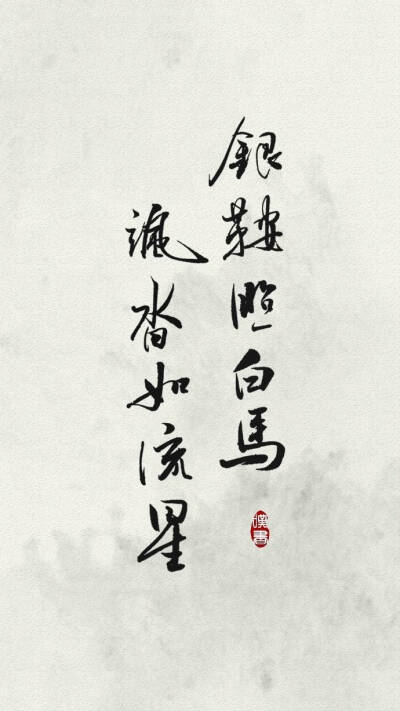 銀鞍照白馬
颯沓如流星